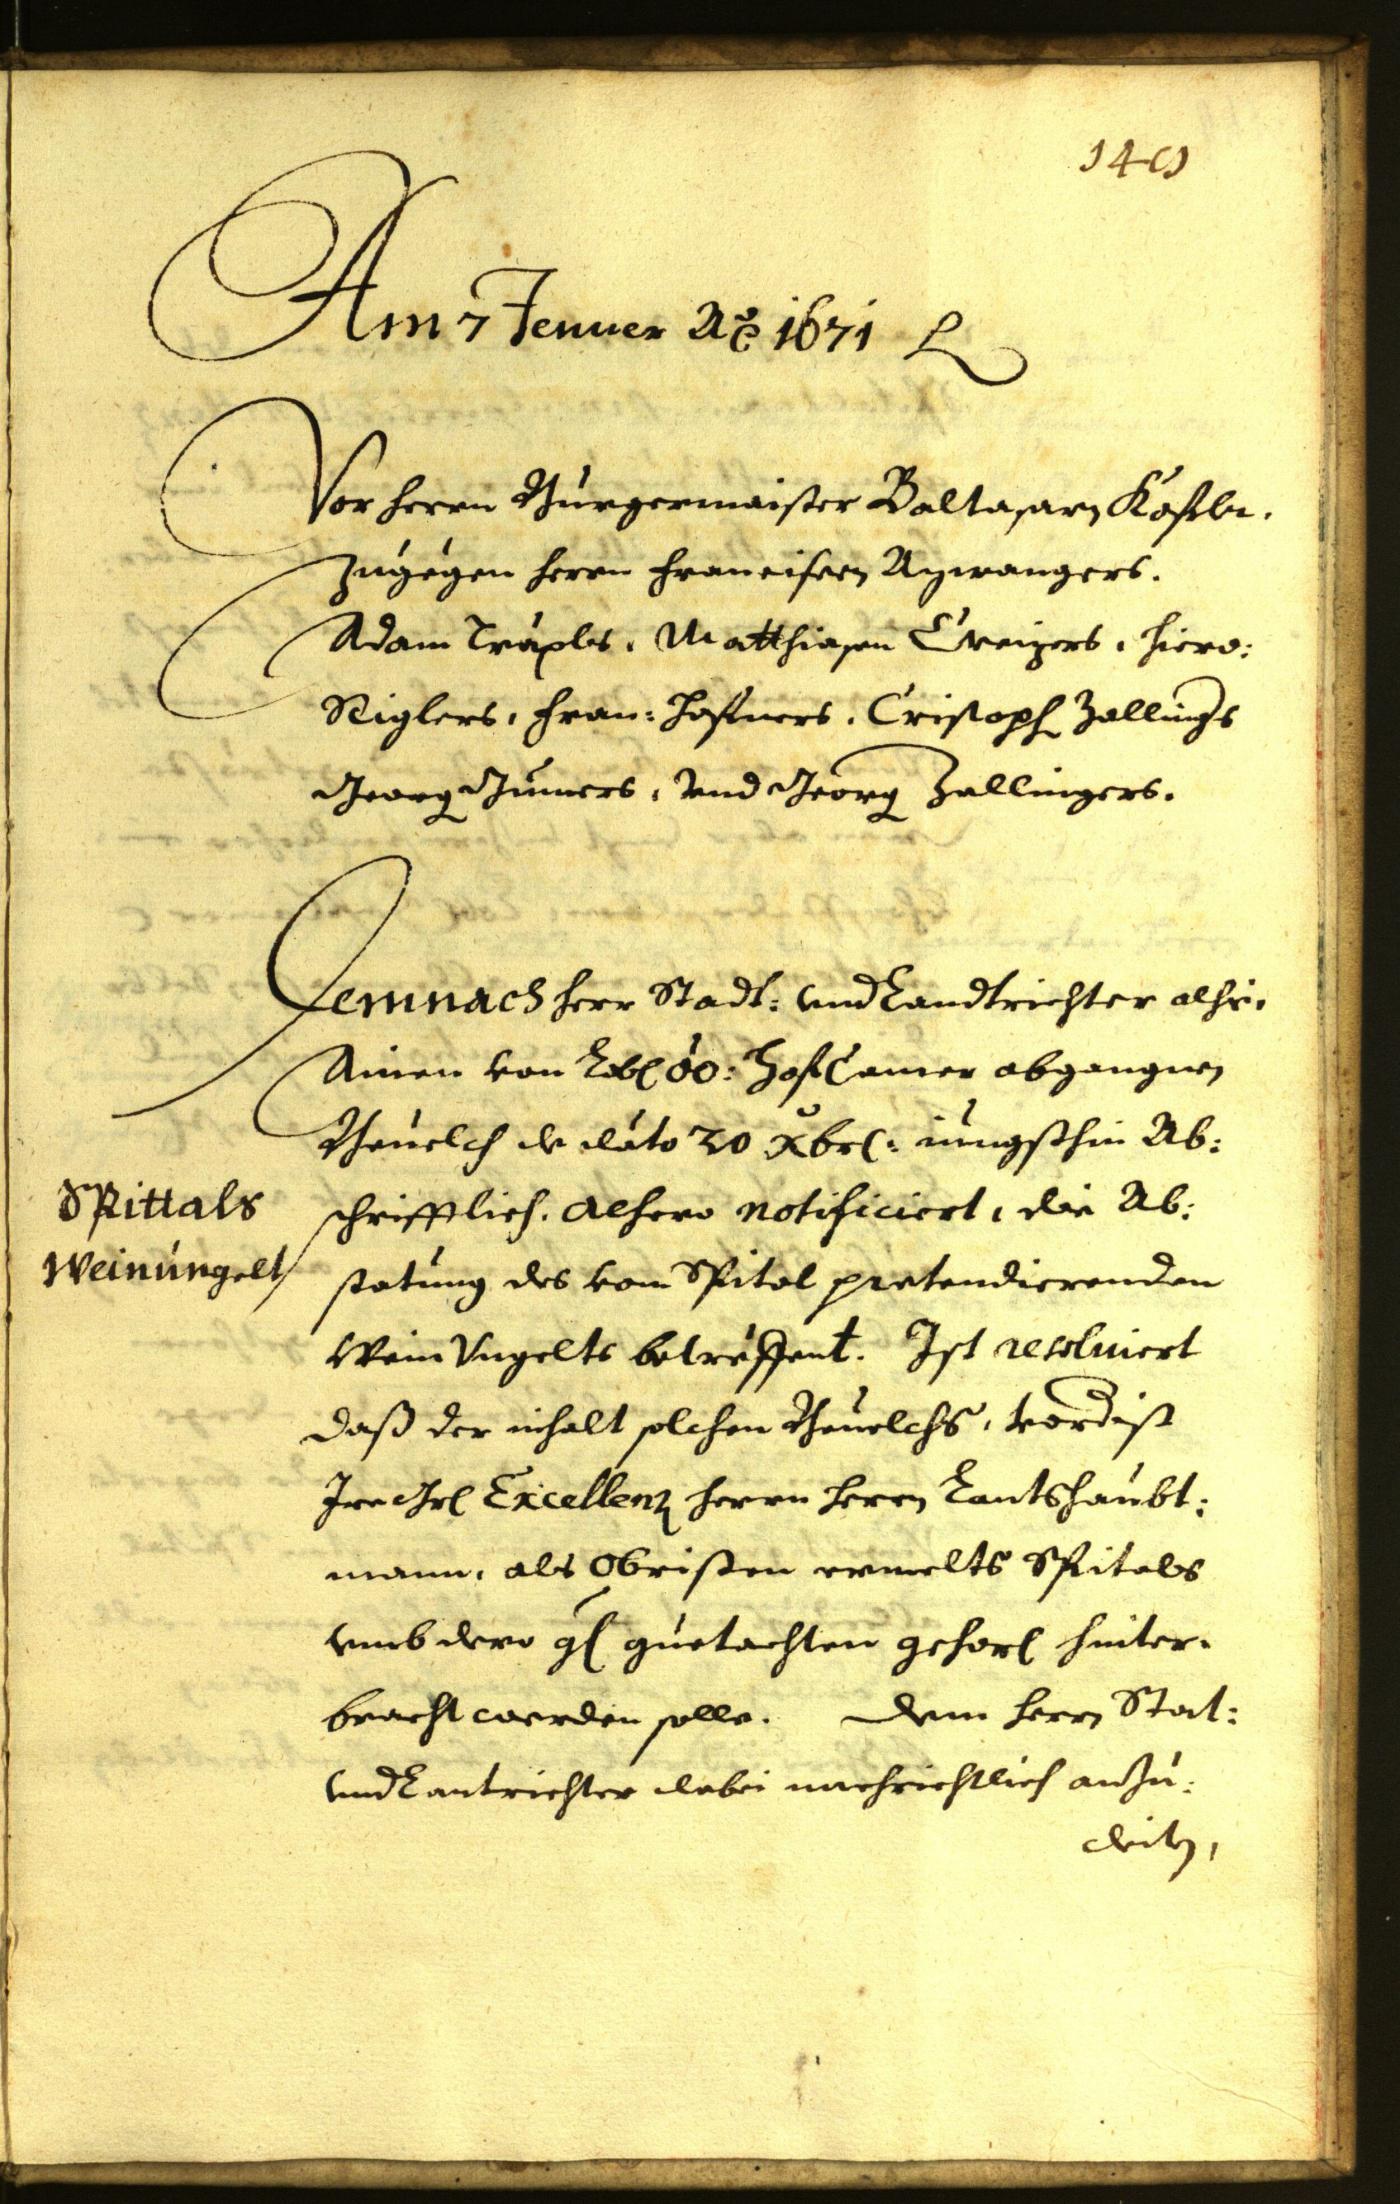 Am 7 Jenner Aō 1671
Vor herrn Burgermaister Baltasarn
Zugegen herrn Franciscen Azwangers.
Adam Träxls, Matthiasen Creizers, Hiero:
Riglers, Fran: Hafners, Cristoph Zallings
Georg Gumers, Und Georg Zallingers.
Demnach herr Stadt: und Landtrichter alhie,
Ainen von Lobl OÖ: HofCamer abgangnen
Beuelch de dato 20 Xbrl: iungsthin Ab:
schrifftlich, alhero notificiert, die Ab:
statung des vom Spital pretendierenden
Wein Ungelts betreffent. Ist resoluiert
daß der inhalt solchen Beuelchs, vordist
Ire Gel Excellenz herrn herrn Lantshaubt:
mann, als Obristen ermelts Spitals
umb dero gl guetachten gehorl hinter-
bracht werden solle. Dem herrn Stat:
und Lantrichter dabei nachrichtlich anzu:
deiten,
Spittals
Weinungelt